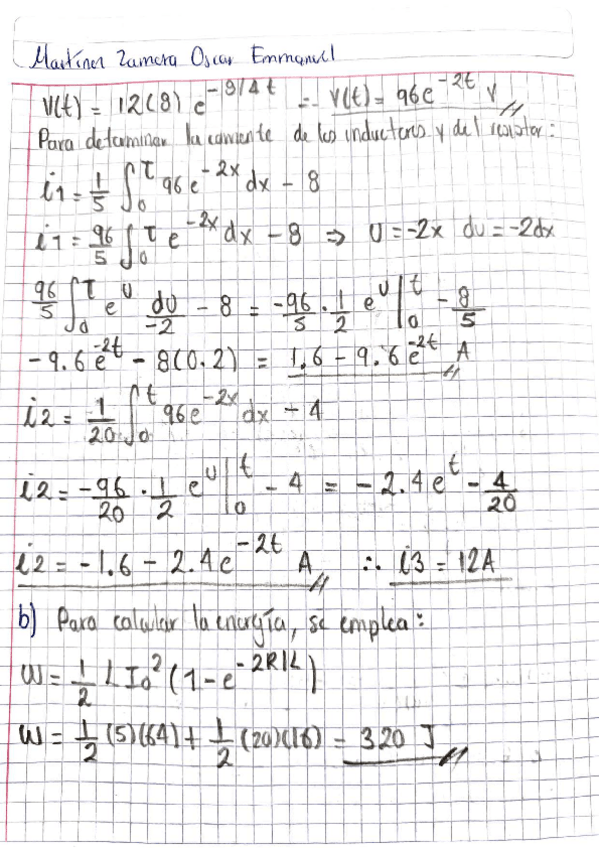 Martínez Zamora Oscar Emmanuel
V(t) = 12(8) e^{-8/4 t} ∴ V(t) = 96e^{-2t} V
Para determinar la corriente de los inductores y del resistor:
i1 = 1/5 ∫_0^t 96e^{-2x} dx - 8
i1 = 96/5 ∫_0^t e^{-2x} dx - 8 ⇒ U = -2x du = -2dx
96/5 ∫_0^t e^U du/-2 - 8 = -96/5 · 1/2 e^U |_0^t - 8/5
-9.6e^{-2t} - 8(0.2) = 1.6 - 9.6e^{-2t} A
i2 = 1/20 ∫_0^t 96e^{-2x} dx - 4
i2 = -96/20 · 1/2 e^U |_0^t - 4 = -2.4e^t - 4/20
i2 = -1.6 - 2.4e^{-2t} A ∴ i3 = 12A
b) Para calcular la energía, se emplea:
W = 1/2 L I_0^2 (1 - e^{-2R/L})
W = 1/2 (5)(64) + 1/2 (20)(16) = 320 J